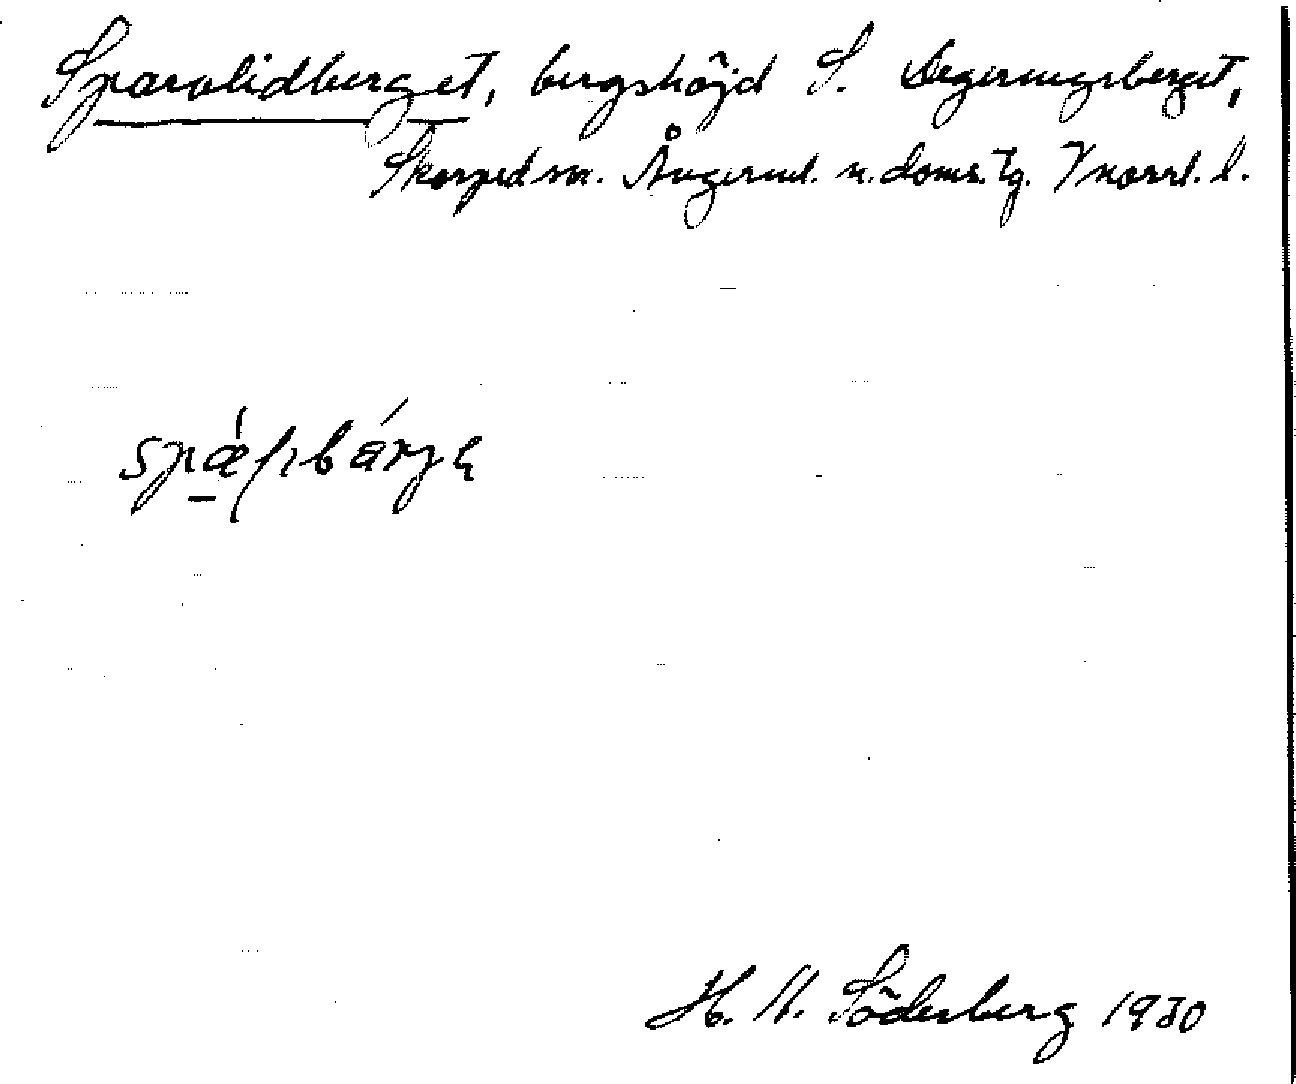 Sparvlidberget, bergshöjd S. Degerungsberget,
Skorped sn. Ångerml. n. doms. tg. Vnorrl. l.
H. N. Söderberg 1930